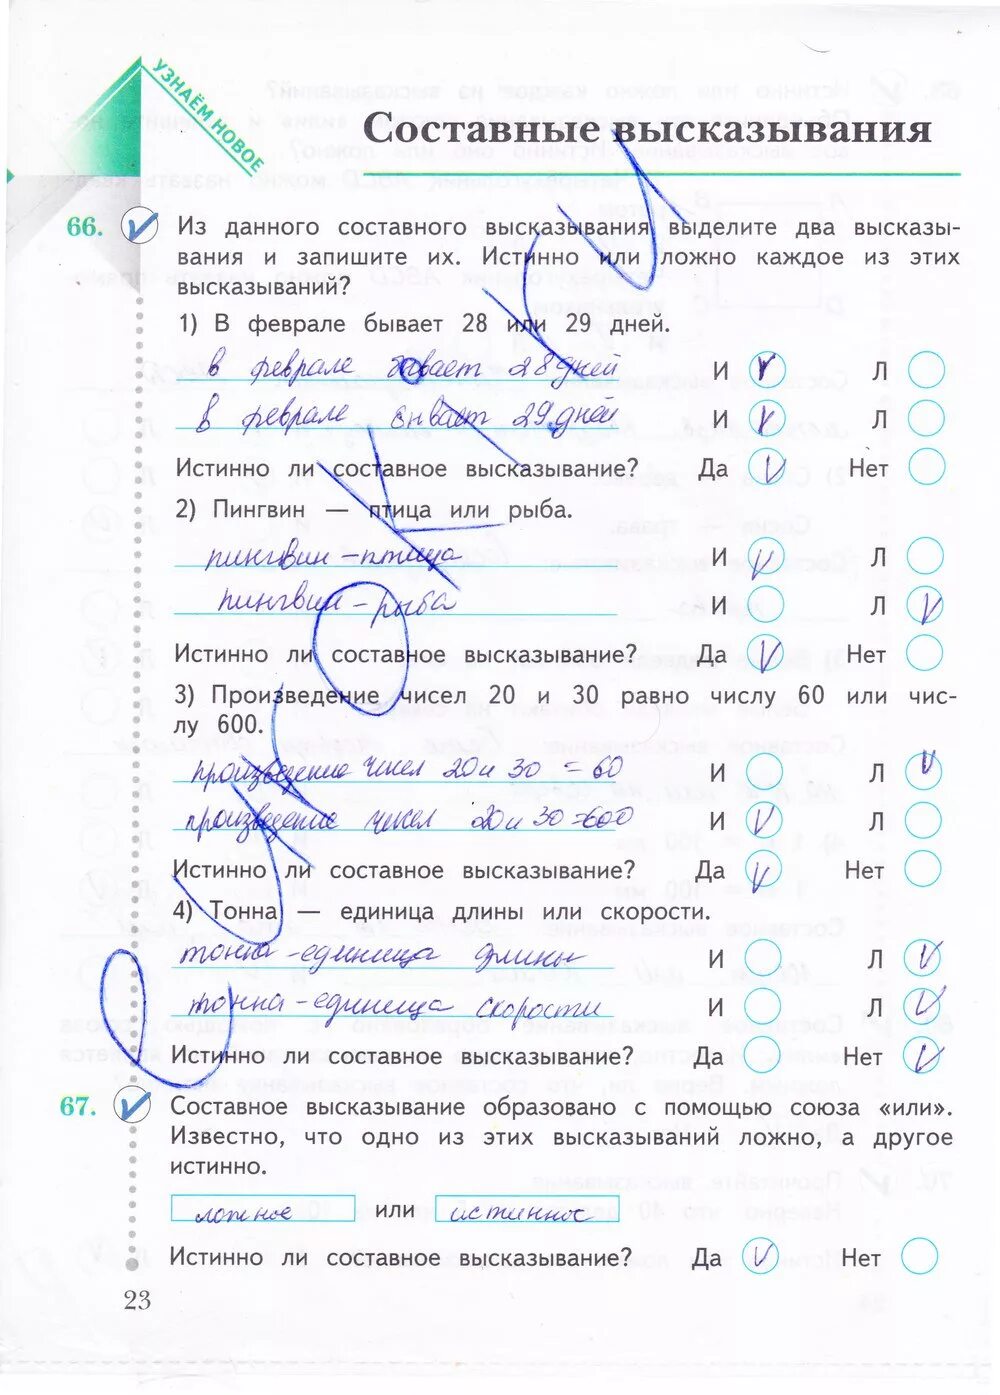 УЗНАЁМ НОВОЕ
Составные высказывания
66. Из данного составного высказывания выделите два высказы-
вания и запишите их. Истинно или ложно каждое из этих
высказываний?
1) В феврале бывает 28 или 29 дней.
в феврале бывает 28 дней И V Л
в феврале бывает 29 дней И V Л
Истинно ли составное высказывание? Да V Нет
2) Пингвин — птица или рыба.
пингвин - птица И V Л
пингвин - рыба И Л V
Истинно ли составное высказывание? Да V Нет
3) Произведение чисел 20 и 30 равно числу 60 или чис-
лу 600.
произведение чисел 20 и 30 = 60 И Л V
произведение чисел 20 и 30 = 600 И V Л
Истинно ли составное высказывание? Да V Нет
4) Тонна — единица длины или скорости.
тонна - единица длины И Л V
тонна - единица скорости И Л V
Истинно ли составное высказывание? Да Нет V
67. Составное высказывание образовано с помощью союза «или».
Известно, что одно из этих высказываний ложно, а другое
истинно.
ложное или истинное
Истинно ли составное высказывание? Да V Нет
23